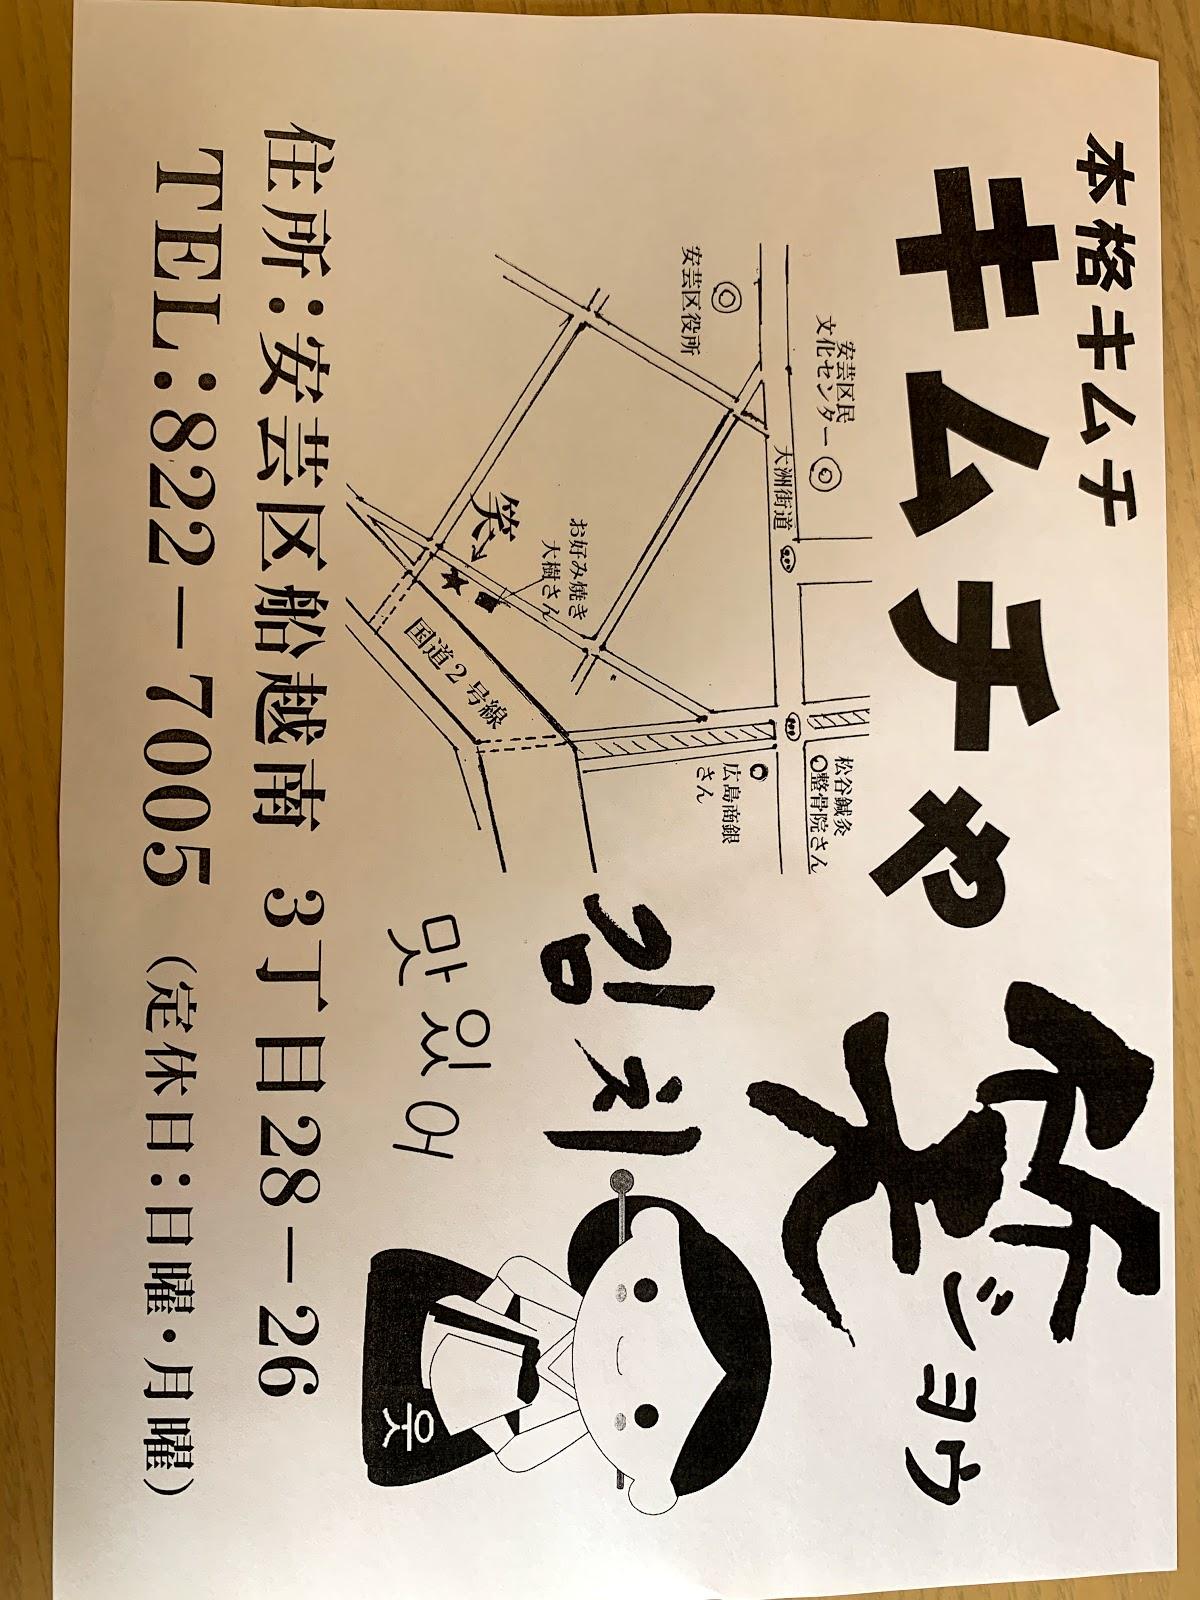 本格キムチ
キムチや 笑 ジョウ
安芸区民
文化センター
安芸区役所
大洲街道
松谷鍼灸
整骨院さん
広島商銀
さん
お好み焼き
大樹さん
笑
国道2号線
김치
맛있어
웃
住所：安芸区船越南 3丁目28－26
TEL：822－7005（定休日：日曜・月曜）